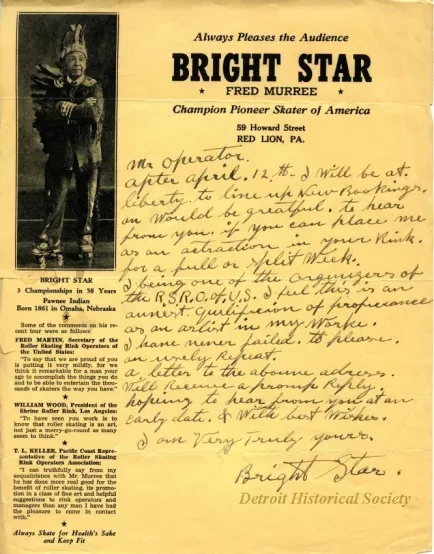 Always Pleases the Audience
BRIGHT STAR
★ FRED MURREE ★
Champion Pioneer Skater of America
59 Howard Street
RED LION, PA.
Mr Operator.
after april. 12th I Will be at.
liberty. to line up New Bookings.
an Would be greatful. to hear
from you. if you can place me
as an attraction in your Rink.
for a full or split Week.
I being one of the organizers of
the R.S.R.O. of U.S. I feel this is an
as an artist in my Worke.
I have never failed. to please.
an usely Repeat.
a letter to the above adress.
Will Receive a promp Reply.
hopeing to hear from you at an
Early date. & With best Wishes.
I am Very Truly yours.
Bright Star.
BRIGHT STAR
3 Championships in 58 Years
Pawnee Indian
Born 1861 in Omaha, Nebraska
★
Some of the comments on his recent tour were as follows:
FRED MARTIN, Secretary of the
Roller Skating Rink Operators of
the United States:
"To say that we are proud of you
is putting it very mildly, for we
think it remarkable for a man your
age to accomplish the things you do
and to be able to entertain the thousands of skaters the way you have."
★
WILLIAM WOOD, President of the
Shrine Roller Rink, Los Angeles:
"To have seen you work is to
know that roller skating is an art,
not just a merry-go-round as many
seem to think."
★
T. L. KELLER, Pacific Coast Representative of the Roller Skating
Rink Operators Association:
"I can truthfully say from my
acquaintance with Mr. Murree that
he has done more real good for the
benefit of roller skating, its promotion in a class of fine art and helpful
suggestions to rink operators and
managers than any man I have had
the pleasure to come in contact
with."
★
Always Skate for Health's Sake
and Keep Fit
Detroit Historical Society